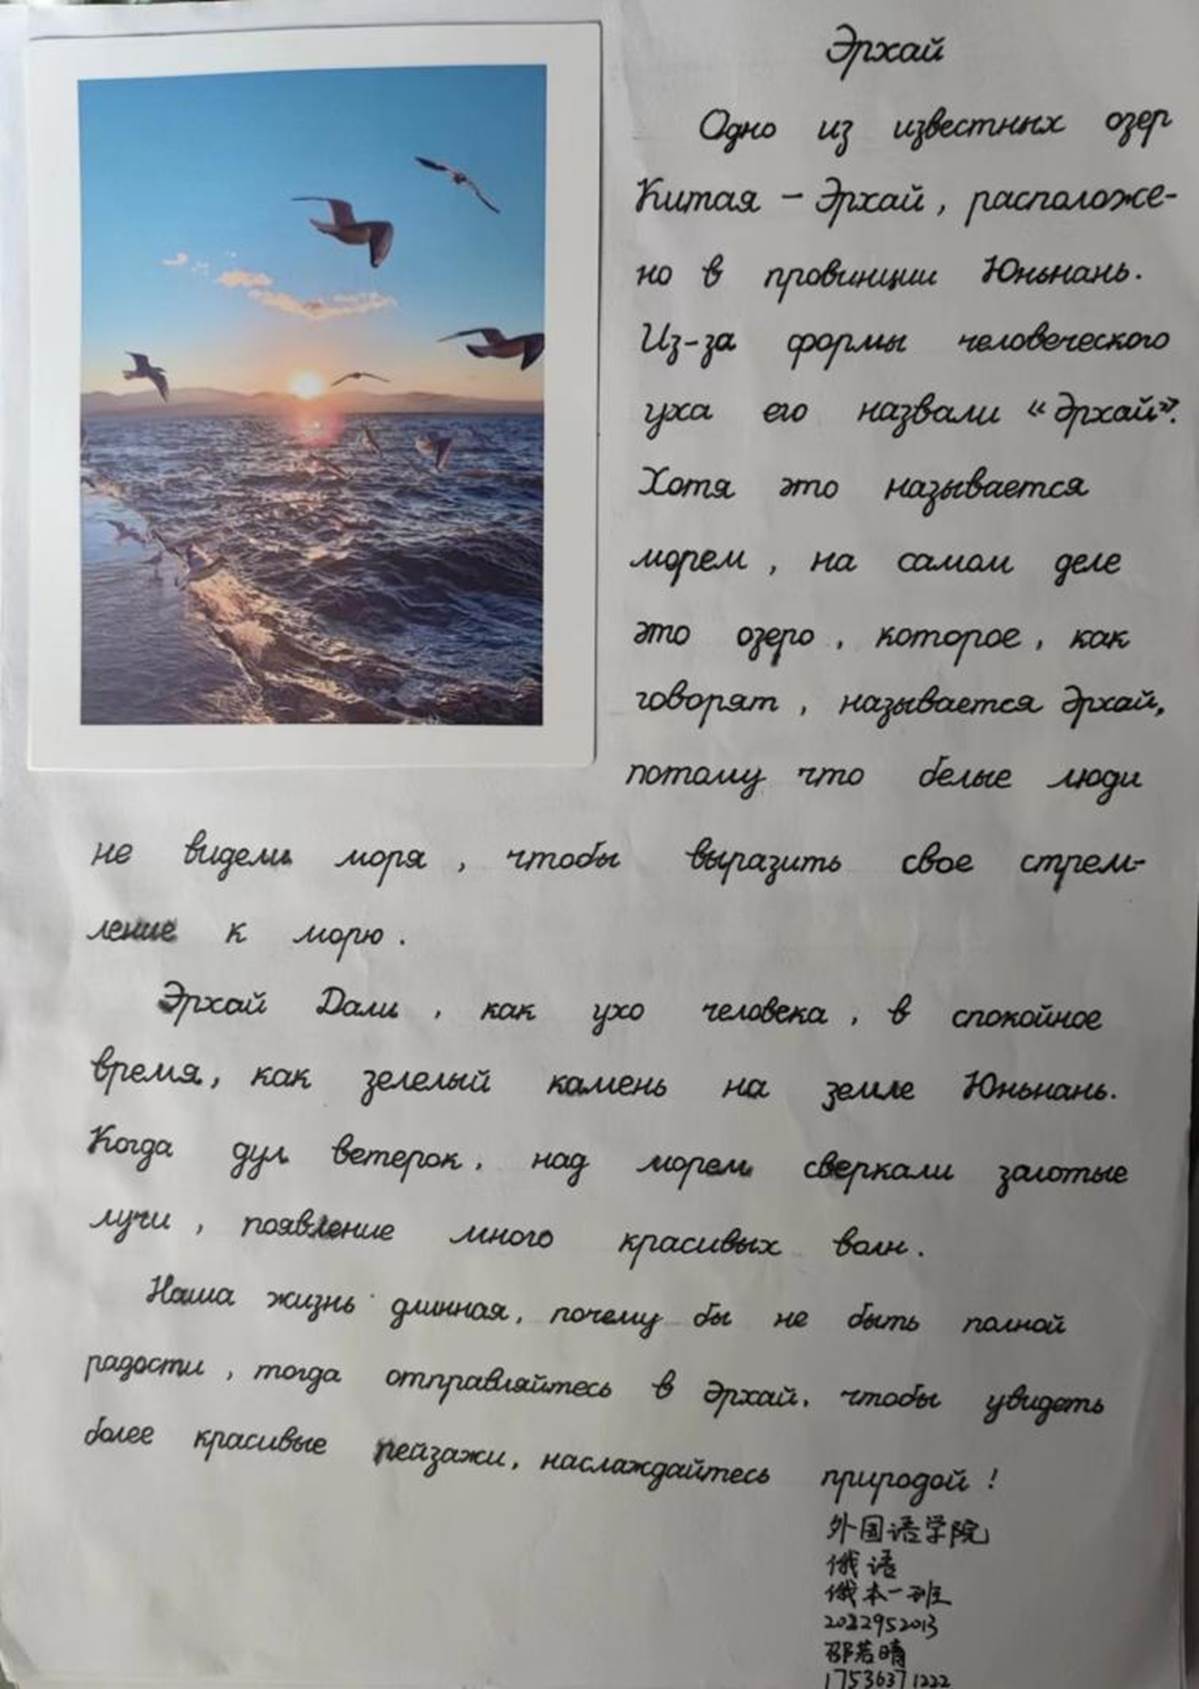 Эрхай
Одно из известных озер
Китая – Эрхай, расположе-
но в провинции Юньнань.
Из-за формы человеческого
уха его назвали «Эрхай».
Хотя это называется
морем, на самом деле
это озеро, которое, как
говорят, называется Эрхай,
потому что белые люди
не видели моря, чтобы выразить свое стрем-
ление к морю.
Эрхай Дали, как ухо человека, в спокойное
время, как зелелый камень на земле Юньнань.
Когда дул ветерок, над морем сверкали залотые
лучи, появление много красивых волн.
Наша жизнь длинная, почему бы не быть полной
радости, тогда отправляйтесь в Эрхай, чтобы увидеть
более красивые пейзажи, наслаждайтесь природой!
外国语学院
俄语
俄本一班
2022952013
邵若晴
17536371222